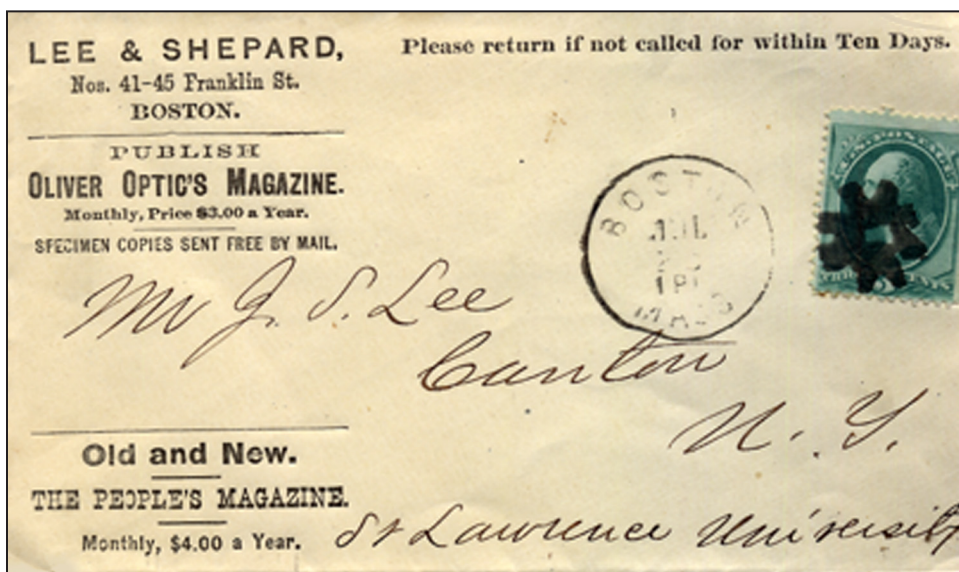 LEE & SHEPARD,
Nos. 41-45 Franklin St.
BOSTON.
PUBLISH
OLIVER OPTIC'S MAGAZINE.
Monthly, Price $3.00 a Year.
SPECIMEN COPIES SENT FREE BY MAIL.
Please return if not called for within Ten Days.
BOSTON
JUL
MASS
U.S. POSTAGE
Mr J. S. Lee
Canton
N. Y.
St Lawrence University
Old and New.
THE PEOPLE'S MAGAZINE.
Monthly, $4.00 a Year.